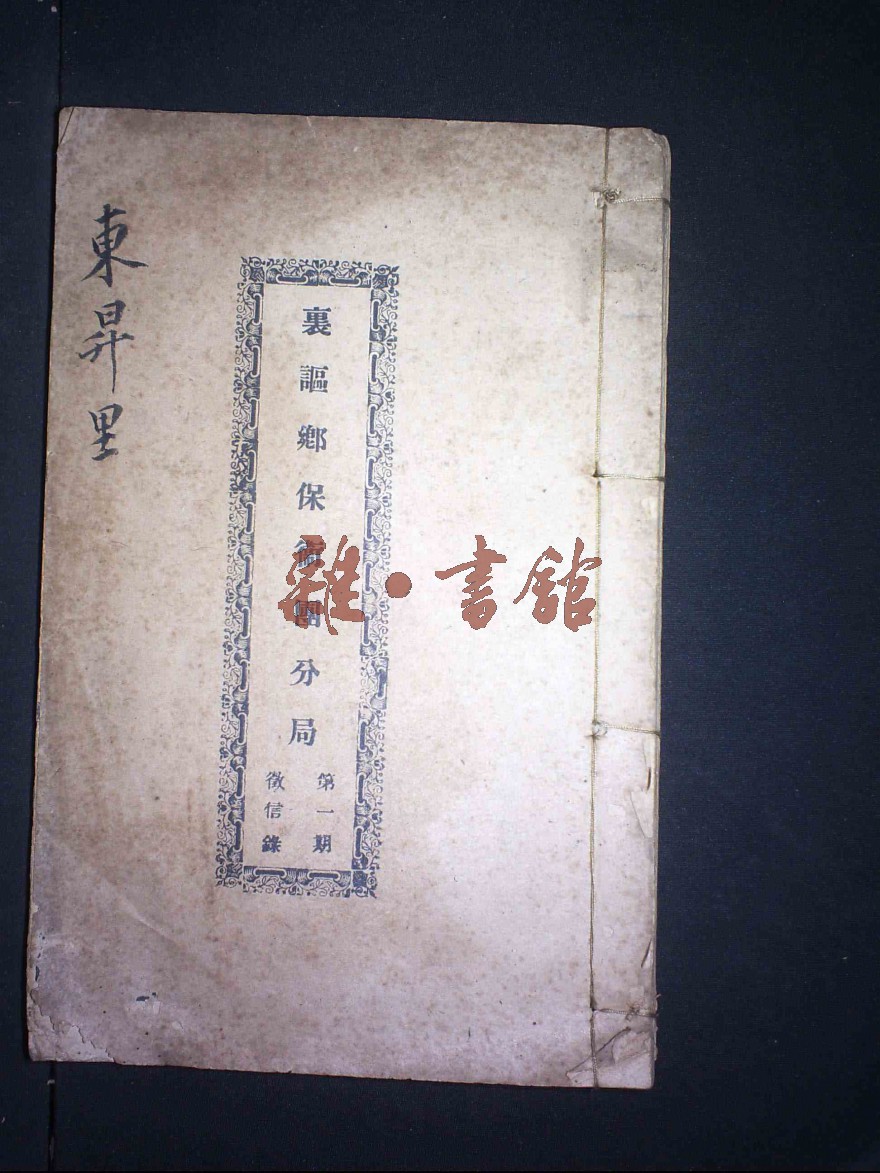 裏謳鄉保衛團分局
第一期
徵信錄
東昇里
雜·書館